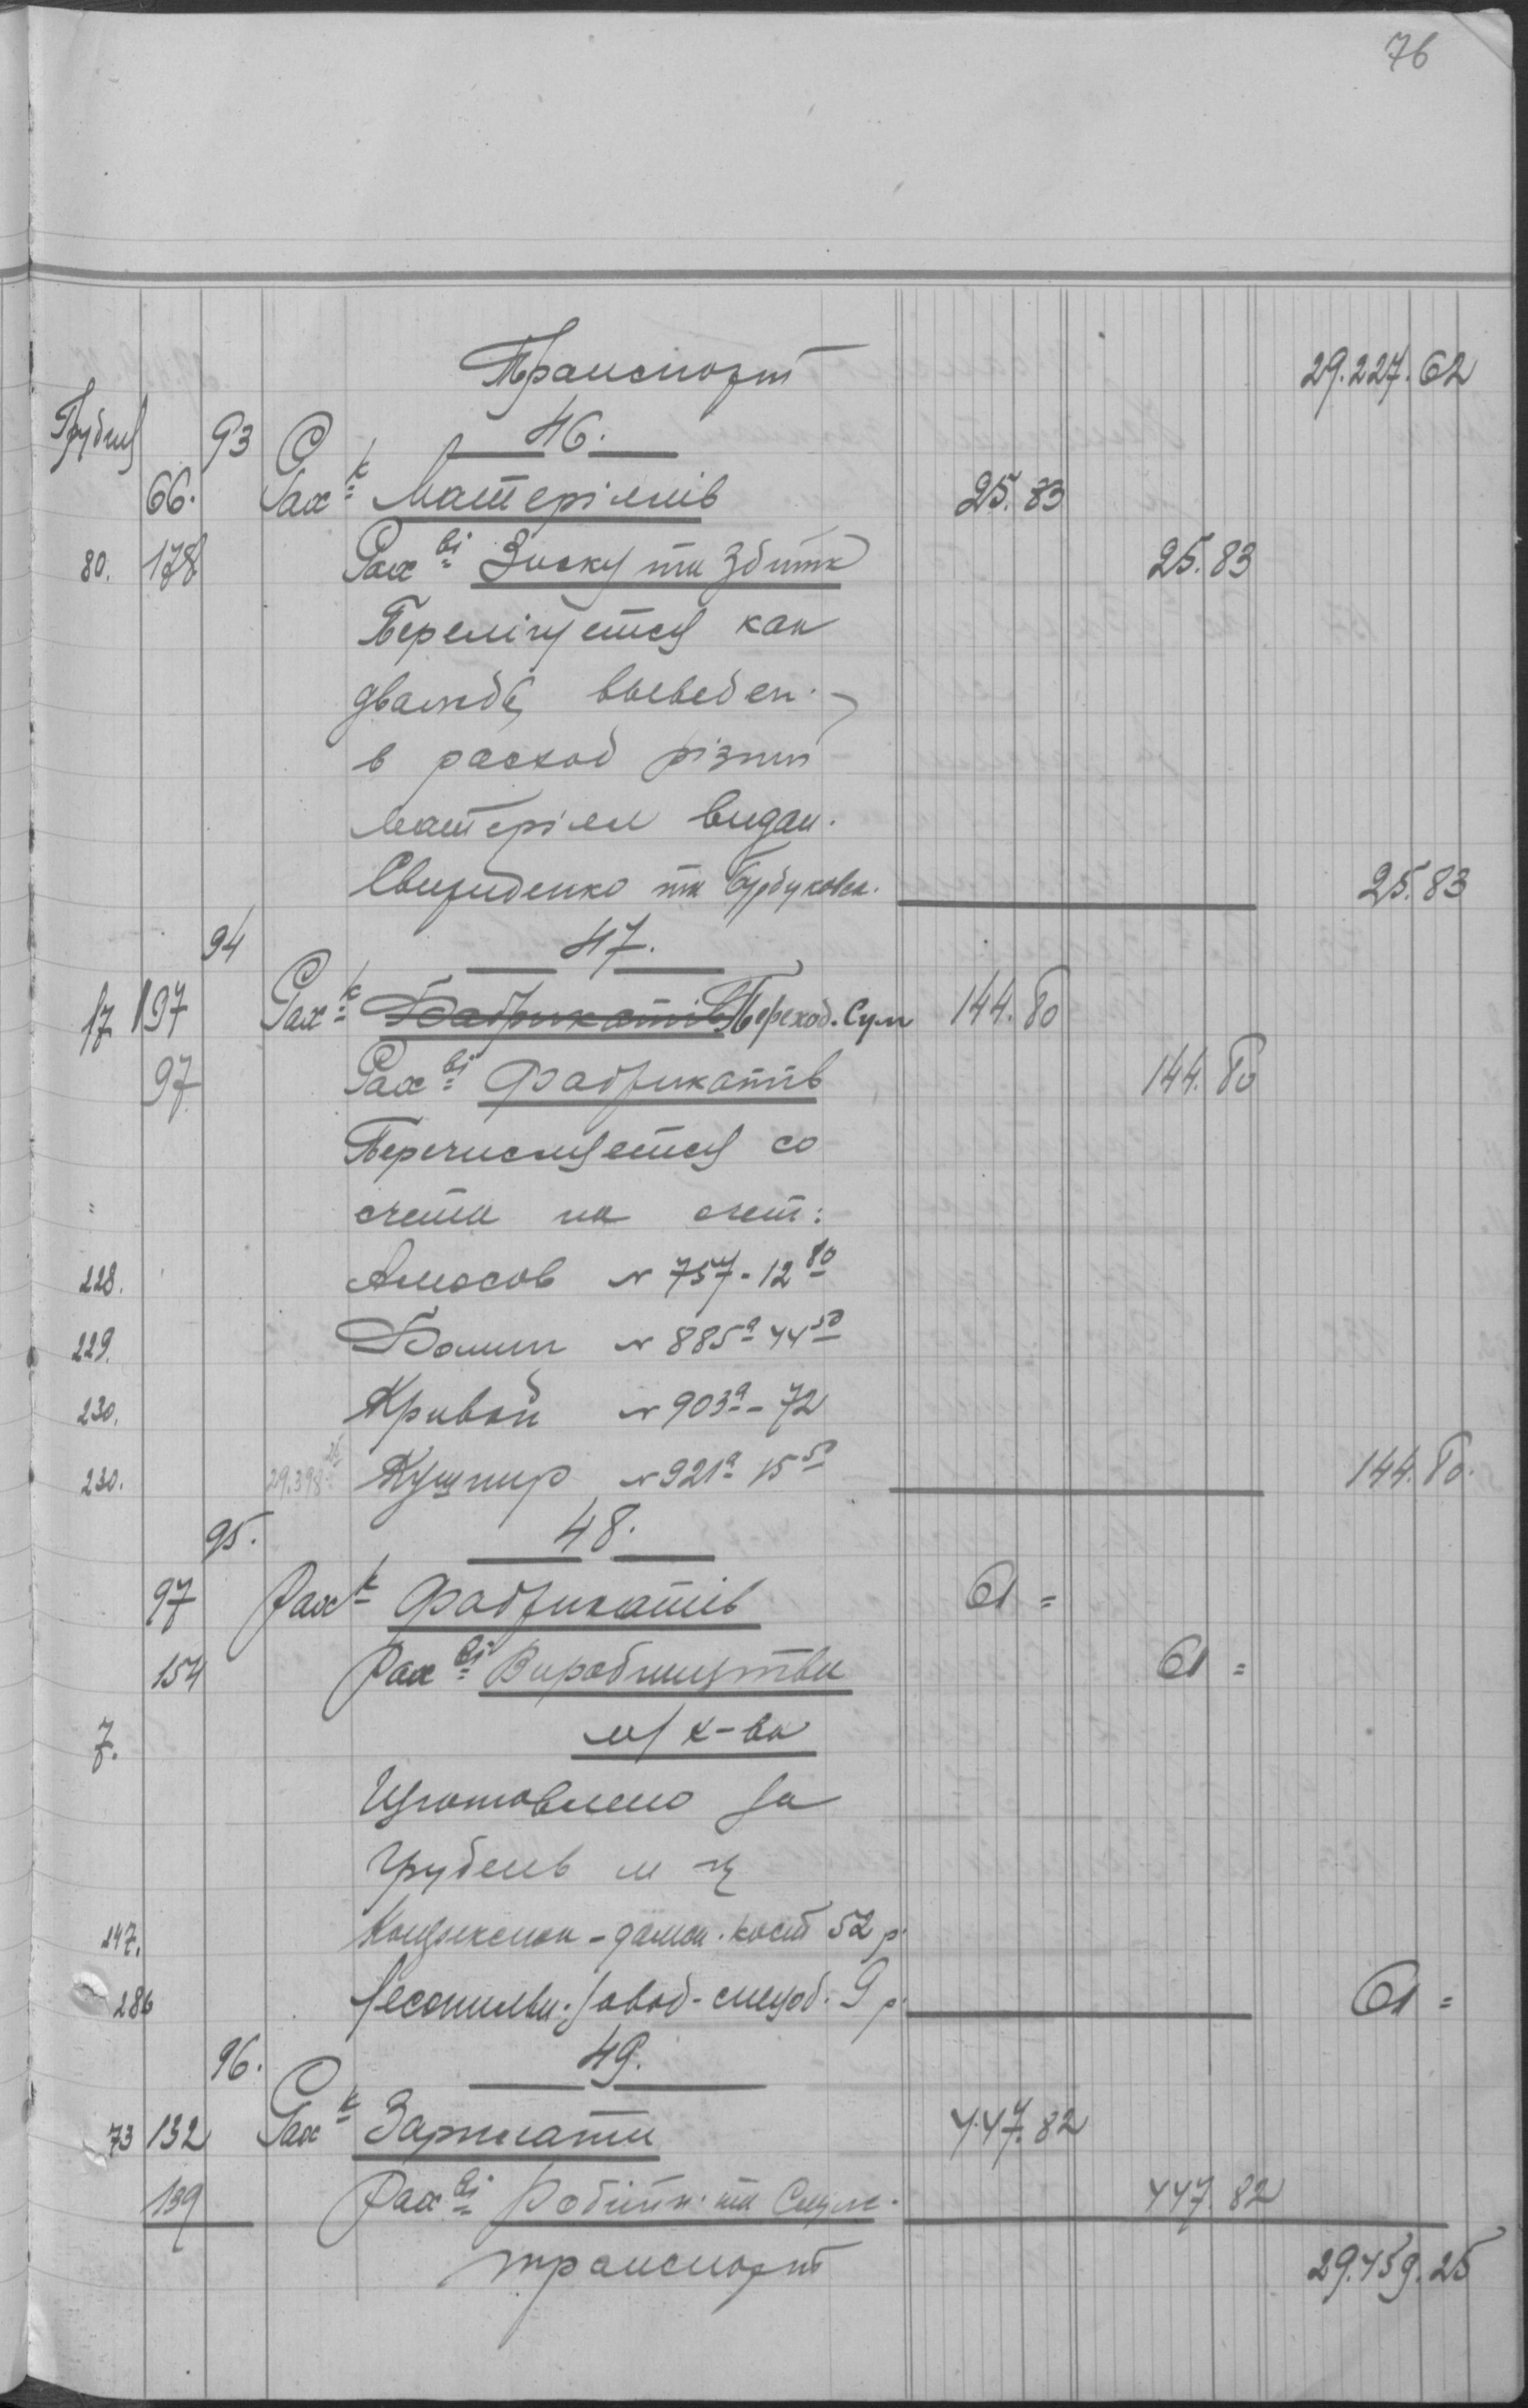 76
Транспорт 29.227.62
Грудня 93 46.
66. Рах к Матеріялів 25.83
80. 178 Рах ві Зиску та Збитк 25.83
Перелічуется как
дважды выведен.
в расход різни
матеріяли видан.
Свириденко та 25.83
94 47.
17 197 Рах к Фабрикатів Переход. Сум 144.80
97 Рах ві Фабрикатів 144.80
Перечисляется со
счета на счет:
228. Амосов № 757 - 12 80
229. Волин № 885а 44 50
230. Кривой № 903а - 72
230. 29.398 25 Кушнир № 921а 15 50 144.80.
95. 48.
97 Рах к Фабрикатів 61 =
154 Рах ві Виробництва 61 =
7. м/х-ва
Изготовлено за
Грудень м-ц
247. Конфекцион - дамск. кост 52 р.
286 Лесопильн. завод - спецод. 9 р. 61 =
96. 49.
73 132 Рах к Зарплати 447.82
139 Рах ві Робітн. та Служ. 447.82
транспорт 29.459.25